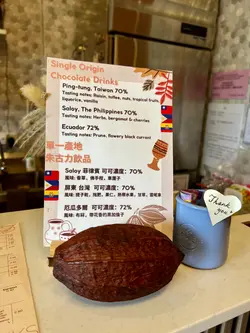 Single Origin
Chocolate Drinks
Ping-tung, Taiwan 70%
Tasting notes: Raisin, toffee, nuts, tropical fruits,
liquorice, vanilla
Saloy, The Philippines 70%
Tasting notes: Herbs, bergamot & cherries
Ecuador 72%
Tasting notes: Prune, flowery black currant
單一產地
朱古力飲品
Saloy 菲律賓 可可濃度：70%
風味：香草，佛手柑，車厘子
屏東 台灣 可可濃度：70%
厄瓜多爾 可可濃度：72%
Thank
you